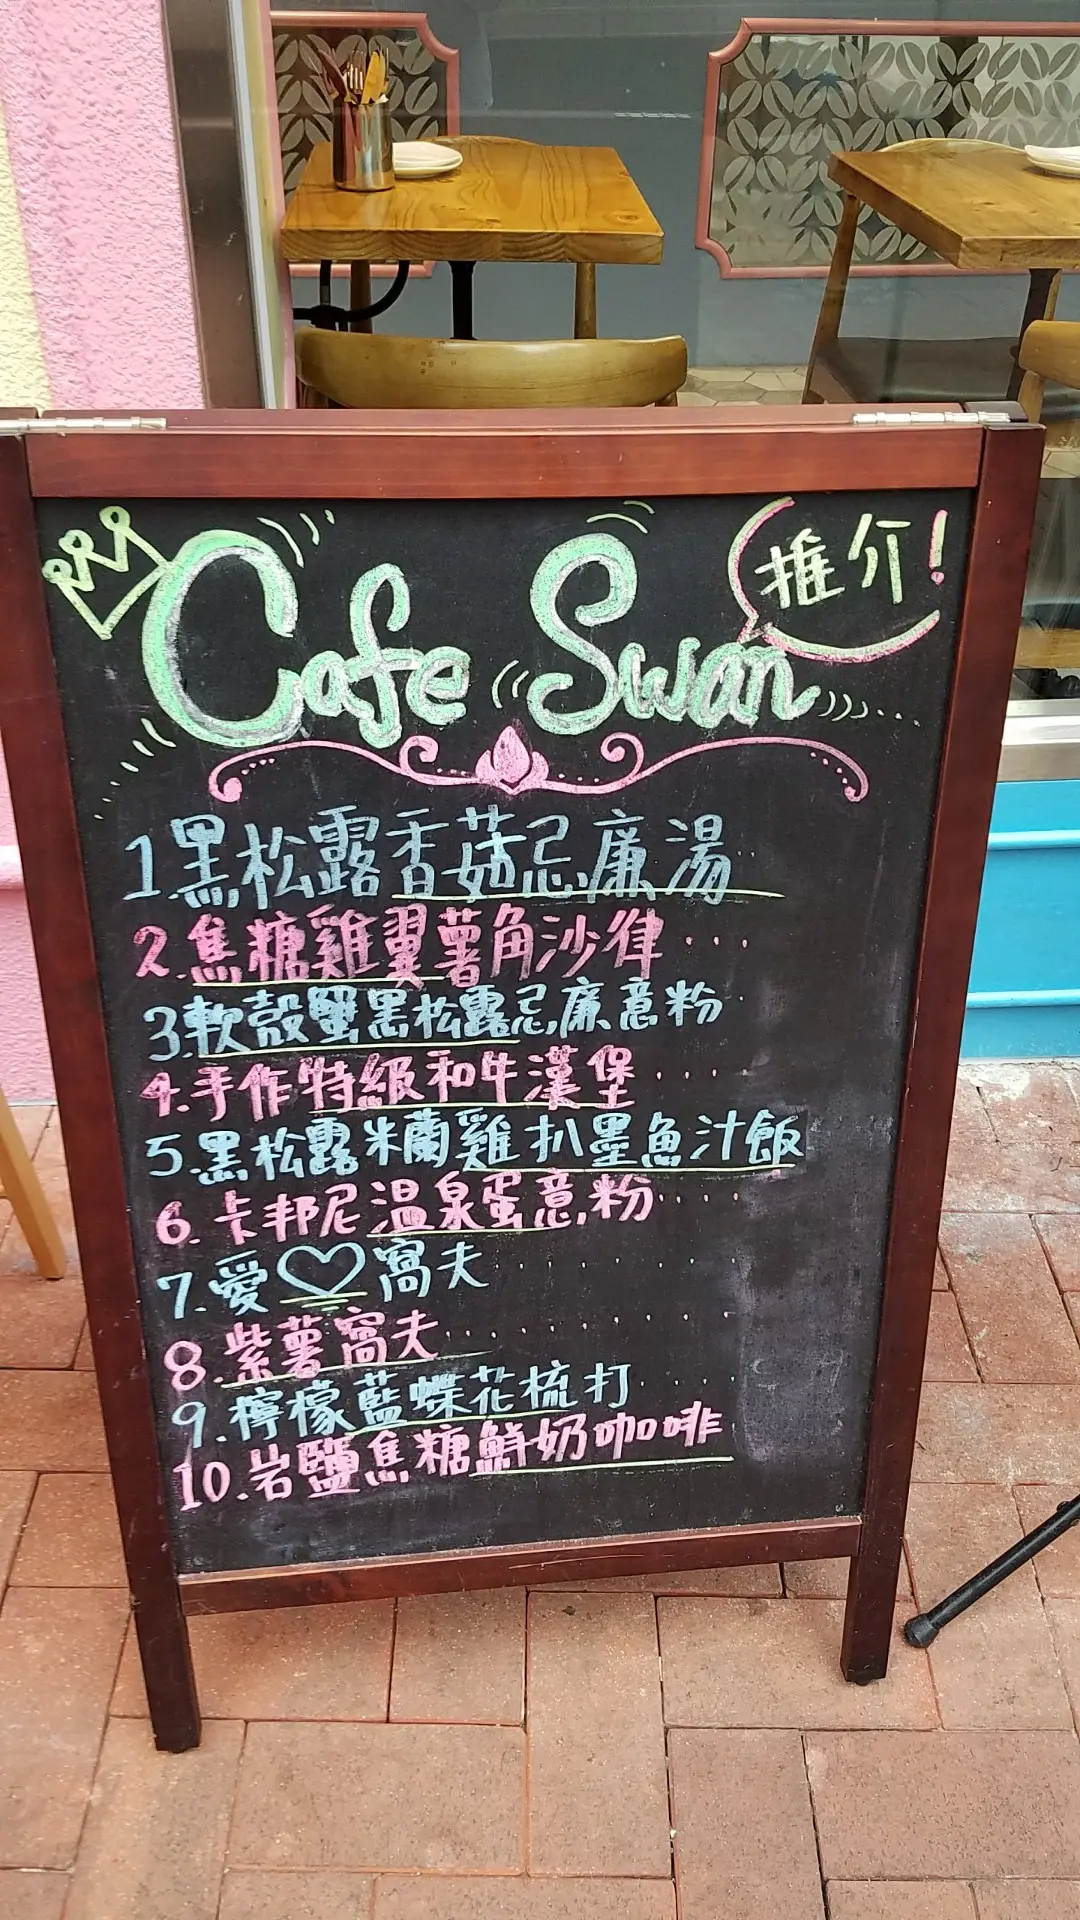 Cafe Swan
推介!
1.黑松露香菇忌廉湯
2.焦糖雞翼薯角沙律...
3.軟殼蟹黑松露忌廉意粉
4.手作特級和牛漢堡....
5.黑松露米蘭雞扒墨魚汁飯
6.卡邦尼溫泉蛋意粉....
7.愛♡窩夫......
8.紫薯窩夫..........
9.檸檬藍蝶花梳打....
10.岩鹽焦糖鮮奶咖啡